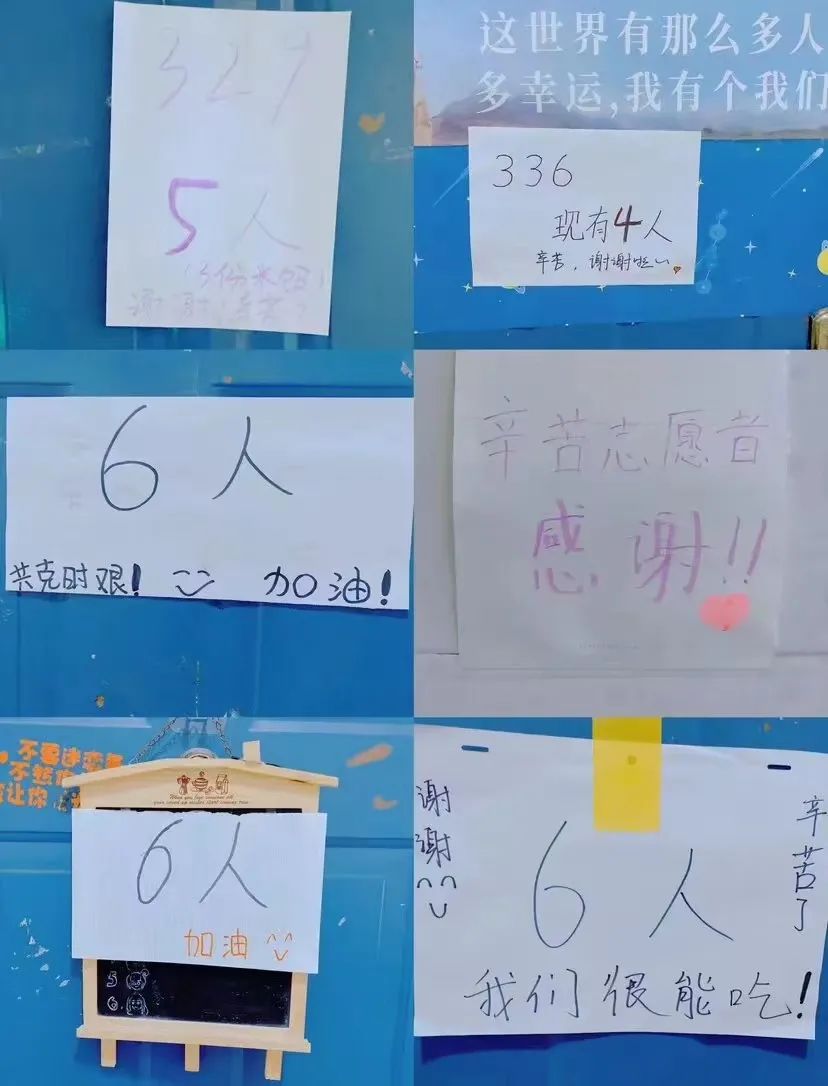 327
5人
(5份米饭)
谢谢!辛苦了
这世界有那么多人
多幸运,我有个我们
336
现有4人
辛苦,谢谢啦~
6人
共克时艰! 加油!
辛苦志愿者
感谢!!
不要迷恋
不然
让你
When you face
your
6人
加油
5
6
谢谢
辛苦了
6人
我们很能吃!